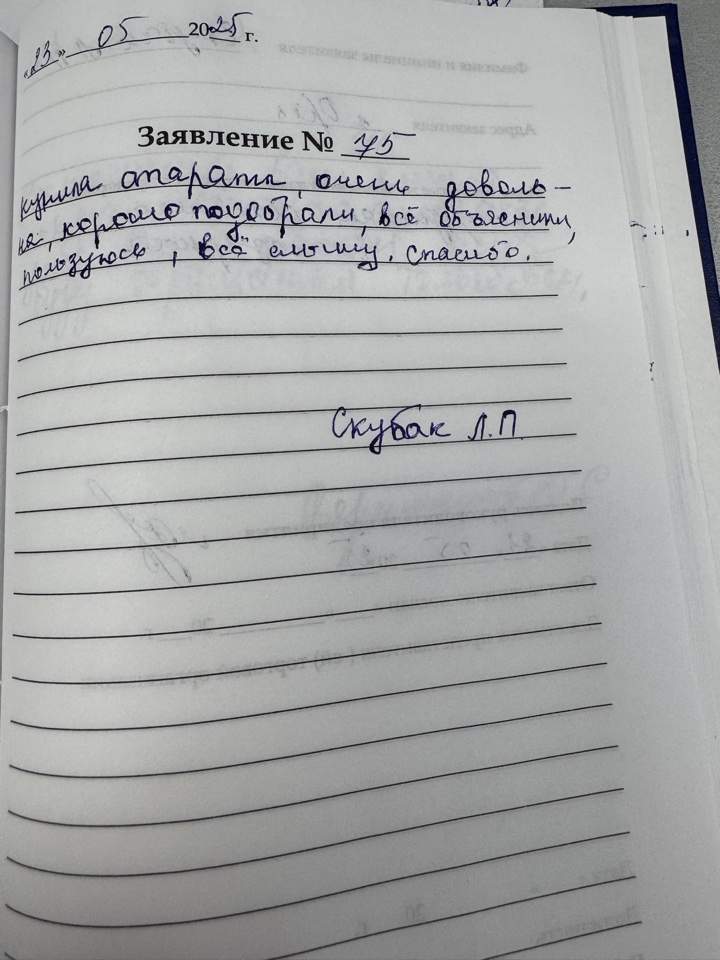 «23» 05 2025 г.
Заявление № 75
купила апараты, очень доволь-
на, хорошо подобрали, всё объяснили,
пользуюсь, всё слышу. Спасибо.
Скубак Л.П.